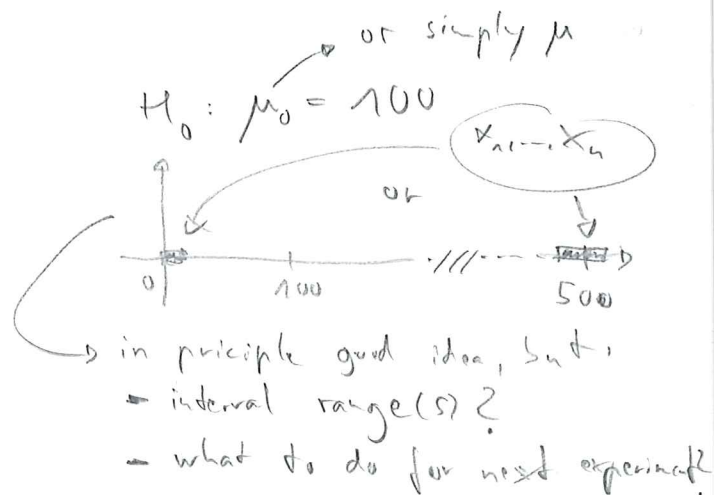 or simply μ
H₀: μ₀ = 100
x₁,...,xₙ
or
0 100 ·///·--- 500
in priciple good idea, but,
- interval range(s)?
- what to do for next experiment?